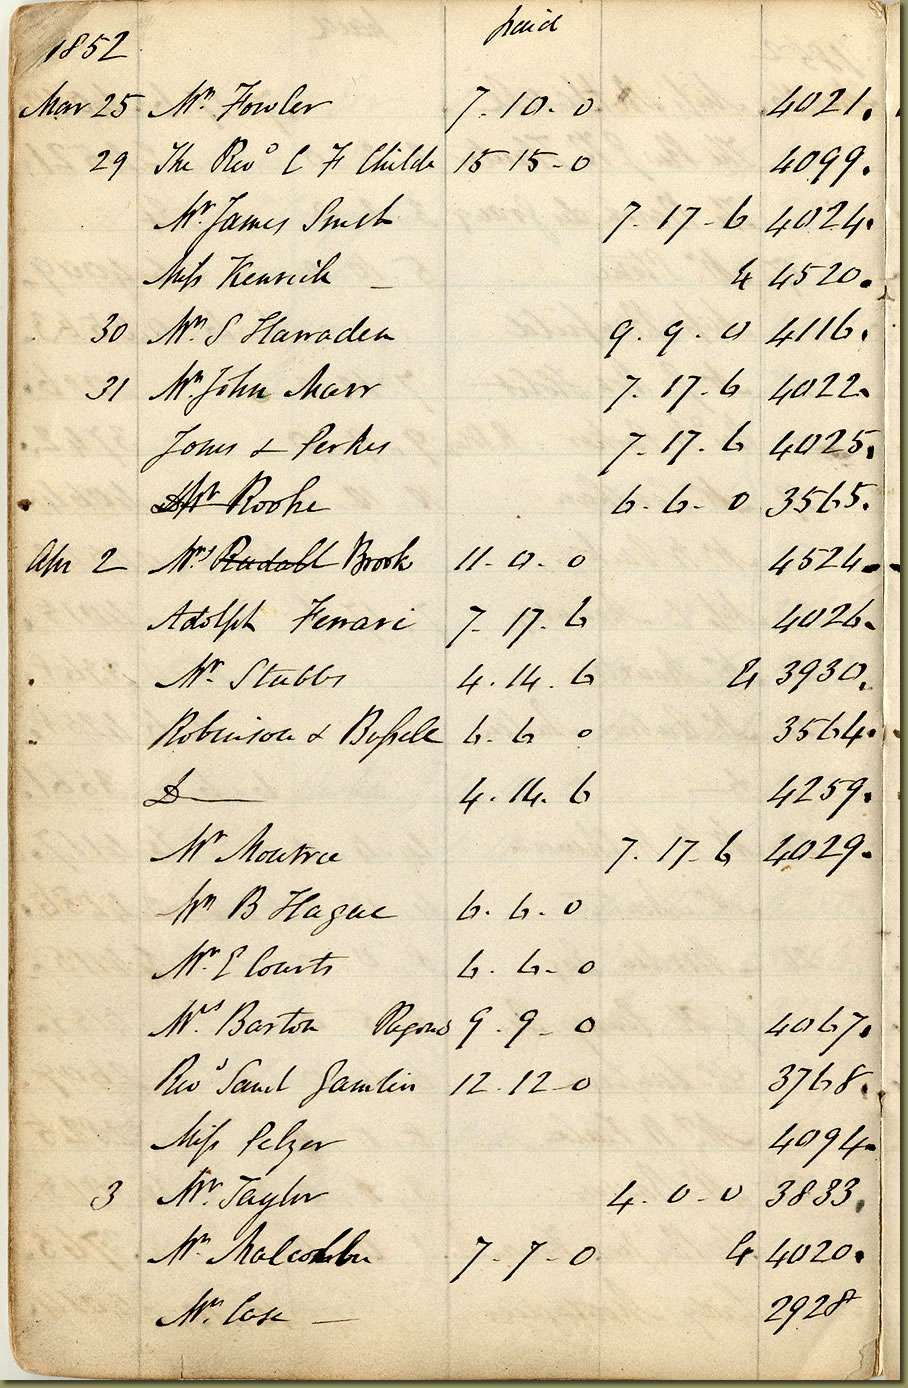 1852 paid
Mar 25 Mr Fowler 7.10.0 4021.
29 The Revd C F Childe 15 15-0 4099.
Mr James Smith 7.17-6 4024.
Miss Kenrick 4520.
30 Mr S Harraden 9.9.0 4116.
31 Mr John Marr 7.17.6 4022.
Jones & Perkes 7.17.6 4025.
Mr Rooke 6.6.0 3565.
Apr 2 Mrs Radall Brook 11.0.0 4524.
Adolph Ferrari 7.17.6 4026.
Mr Stubbs 4.14.6 3930.
Robinson & Bussell 6.6 0 3564.
D 4.14.6 4259.
Mr Moutrie 7.17.6 4029.
Mr B Hague 6.6.0
Mr E Courts 6.6-0
Mrs Barton 9.9-0 4067.
Revd Saml Gamlin 12.12-0 3768.
Miss Pelzer 4094.
3 Mr Taylor 4.0-0 3833.
Mr 7-7-0 4020.
Mr Case 2928